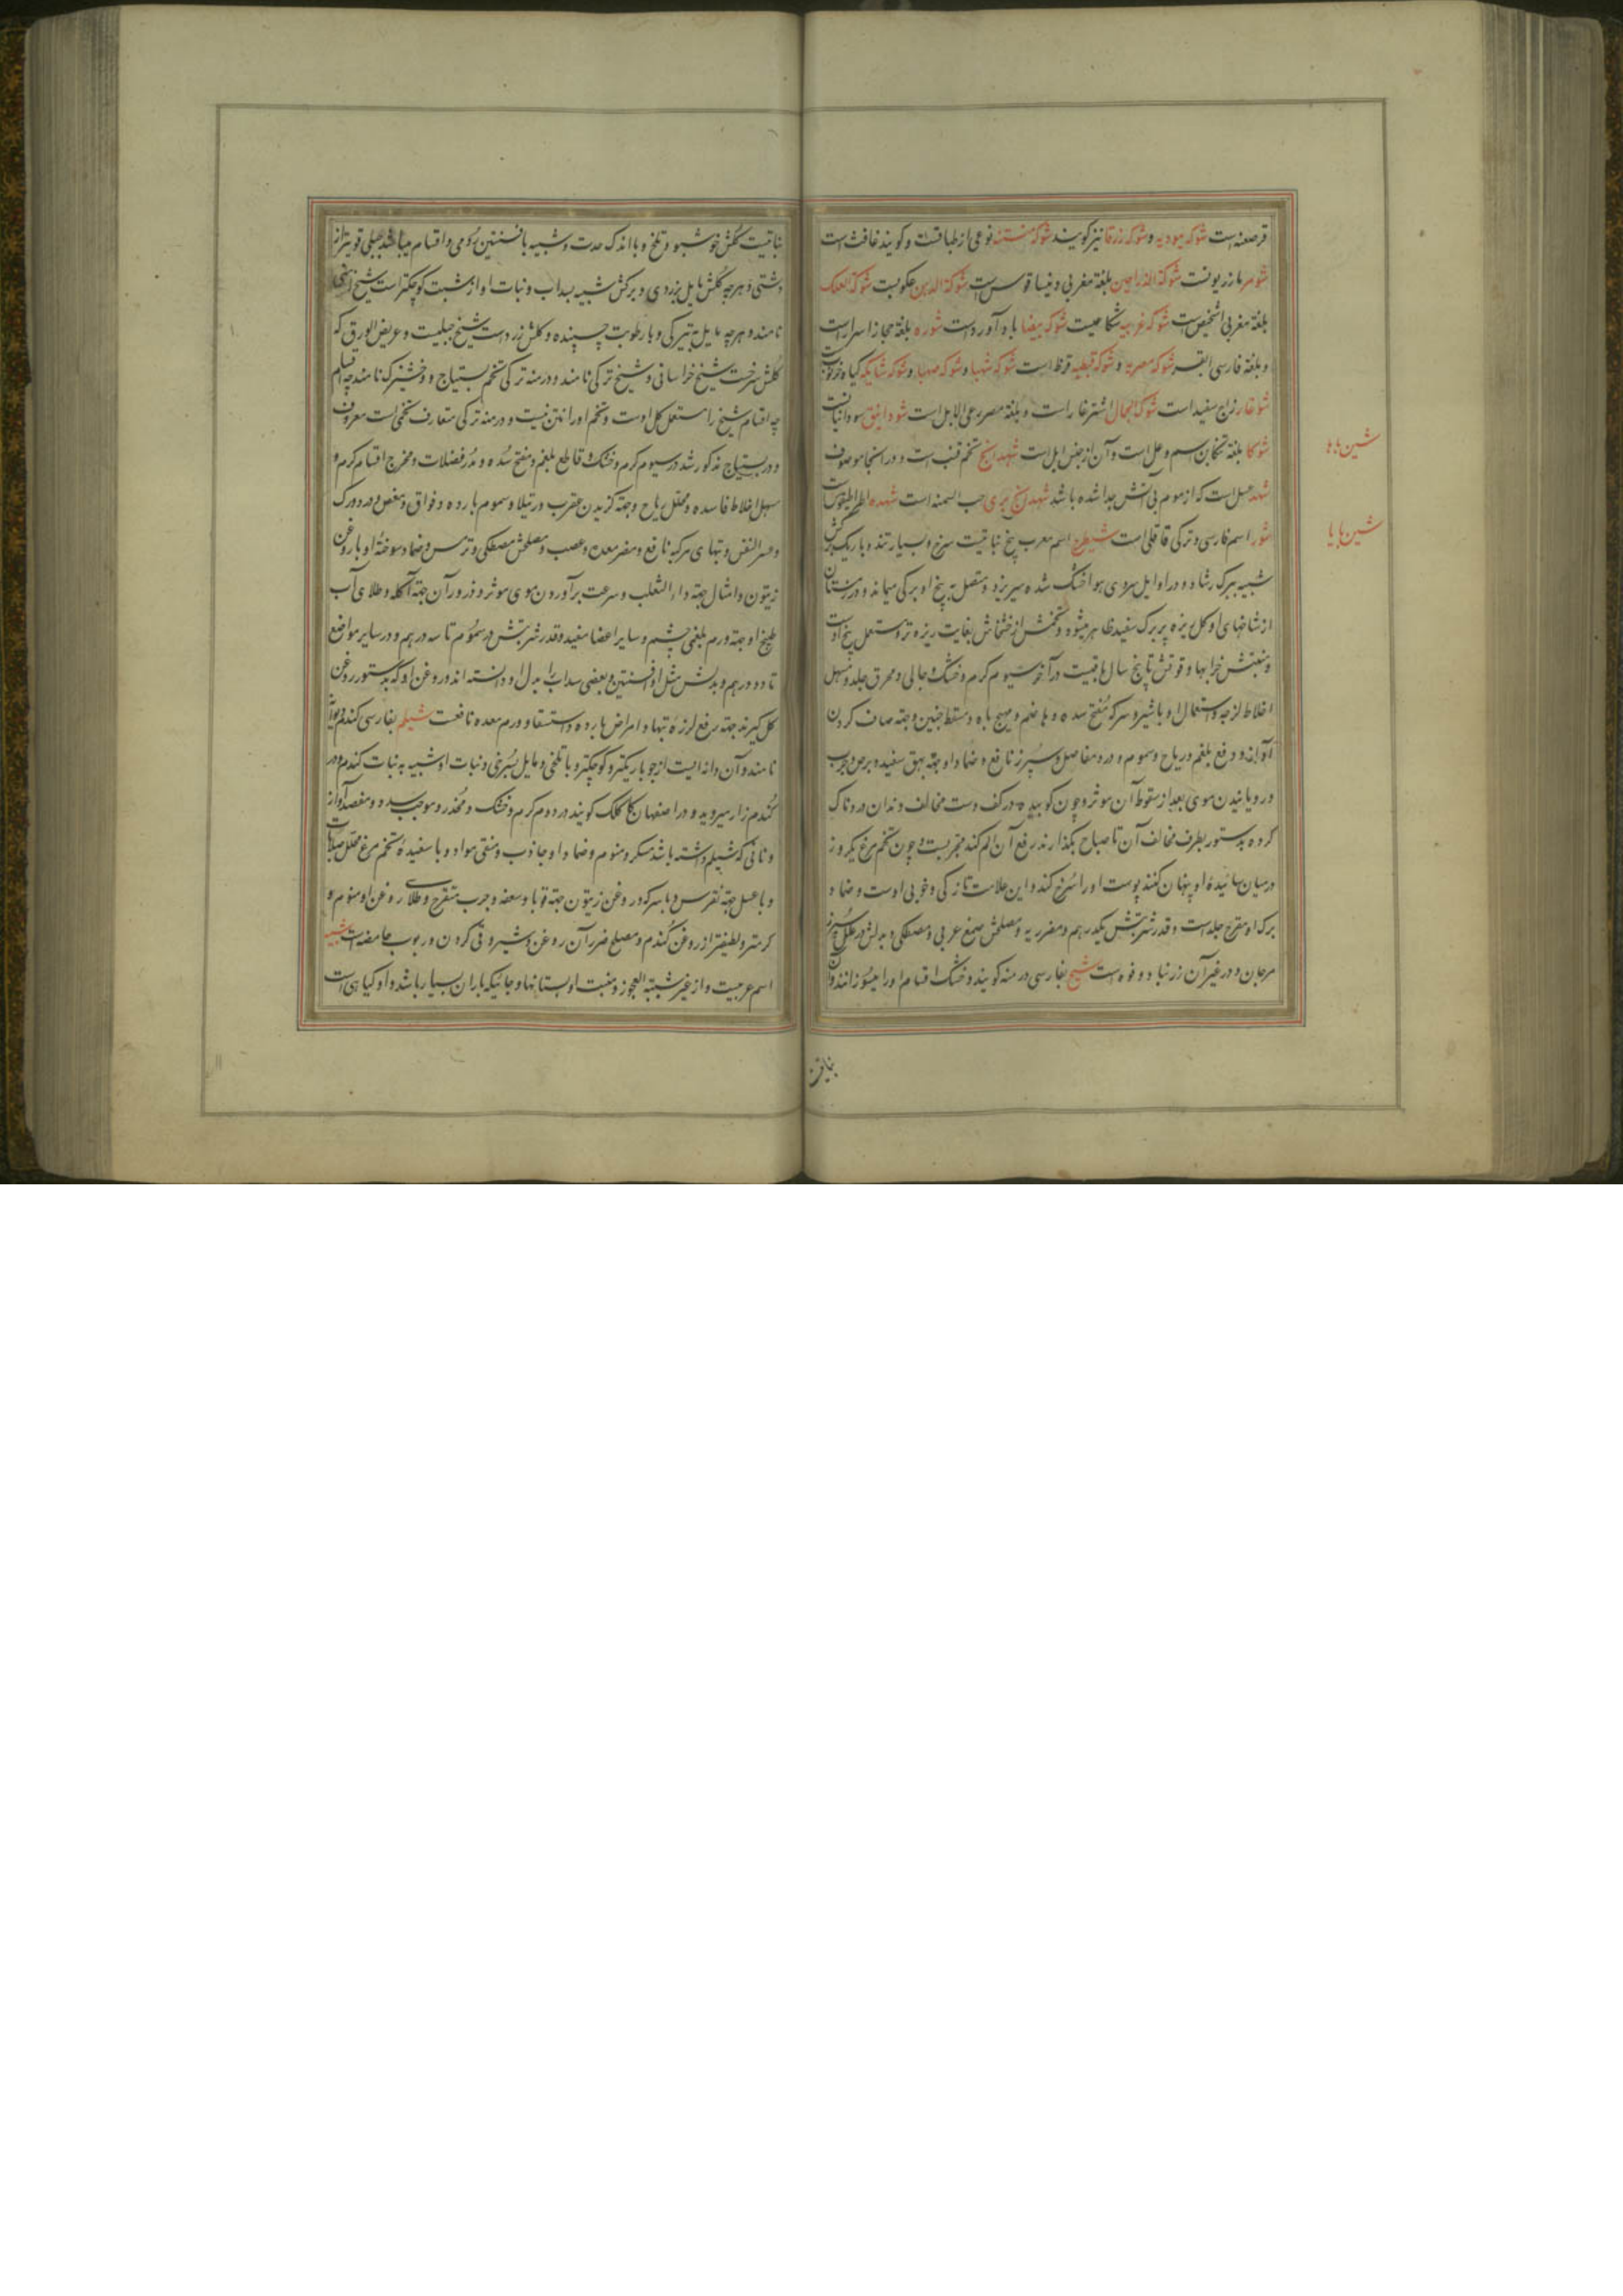 قرصعنه است شوکه یهودیه و شوکه زرقا نیز گویند شوکه منتنه نوعی از طباقست و گویند غافث است
شومر مازریونست شوکة الدراجین بلغة مغربی دنیساقوس است شوکة الدمن عکوبست شوکة العلک
بلغة مغربی اشخیص است شوکه غریبه شکاعیست شوکه بیضا باد آورد است شوره بلغة حجاز اسرار است
و بلغة فارسی ابقر شوکه مصریه و شوکه قبطیه قرظ است شوکه شهبا و شوکه صهبا و شوکه شایکه گیاه خرنوب
شوغار زاج سفید است شوک الجمال اشترغار است و بلغة مصر مرعی الابل است شودانیق سودانیات
شوکا بلغة تنکابن اسم وعل است و آن از جنس ایل است شهدانج تخم قنب است و در آنجا موصوف
شهد عسل است که از موم بی آتش جدا شده باشد شهدانج بری حب السمنه است شهده اطراطیقوس است
شور اسم فارسی و ترکی قاقلی است شیطرج اسم معرب بیخ نباتیست سرخ و بسیار تند و باریک برگش
شبیه ببرک رشاد و در اوایل سردی هوا خشک شده میریزد و متصل به بیخ او برگی میماند و در زمستان
از شاخهای او گل ریزه پر برک سفید ظاهر میشود و تخمش از خشخاش بغایت ریزه تر و مستعمل بیخ اوست
و منبتش خرابها و قوتش تا پنج سال باقیست در آخر سیوم گرم و خشک و جالی و محرق جلد و مسهل
اخلاط لزجه و استعمال او با شیر و سرکه مفتح سده و هاضم و مهیج باه و مسقط جنین و جهة صاف کردن
آواز و دفع بلغم و ریاح و سموم و درد مفاصل و سپرز نافع و ضماد او جهة بهق سفید و برص و جرب
و رویانیدن موی بعد از سقوط آن موثر و چون کوبیده در کف دست مخالف دندان دردناک
کرده بدستور بطرف مخالف آن تا صباح بگذارند رفع آن الم کند مجربست و چون تخم مرغ یکروز
در میان سائیده او پنهان کنند پوست او را سرخ کند و این علامت تازگی و خوبی اوست و ضماد
برک او مقرح جلد است و قدر شربتش یکدرهم و مضر ریه و مصلحش صمغ عربی و مصطکی و بدلش در علل سپرز
مرجان و در غیر آن زرنباد و فوه است شیح بفارسی درمنه گویند و خشک اقسام او را میسوزانند و آن
شین با ها
شین با یا
نباتیست
نباتیست گلش خوشبو و تلخ و با اندک حدت و شبیه بافسنتین رومی و اقسام میباشد جبلی قویتر از
دشتی و هر چه گلش مایل بزردی و برکش شبیه بسداب و نبات او از شبت کوچکتر است شیح ارمنی
نامند و هر چه مایل به تیرگی و با رطوبت چسپنده و گلش زرد است شیح جبلیست و عریض الورق که
گلش سرخست شیح خراسانی و شیح ترکی نامند و درمنه ترکی تخم بستیاج و وخشیزک نامند چه اقسام
چه اقسام شیح را مستعمل گل اوست و تخم او را اثری نیست و درمنه ترکی متعارف تخمی است معروف
و در بستیاج مذکور شد در سیوم گرم و خشک و قاطع بلغم و مفتح سده و مدر فضلات و مخرج اقسام کرم و
مسهل اخلاط فاسده و محلل ریاح و جهة گزیدن عقرب و رتیلا و سموم بارده و فواق و مغص و درد ورک
و عسر النفس و تبهای مرکبه نافع و مضر معده و عصب و مصلحش مصطکی و ترمس و ضماد سوختهٔ او با روغن
زیتون و امثال جهة داء الثعلب و سرعت برآوردن موی موثر و ذرور آن جهة آکله و طلای آب
طبیخ او جهة ورم بلغمی چشم و سایر اعضا مفید و قدر شربتش در سموم تا سه درهم و در سایر مواضع
تا دو درهم و بدلش مثل او افسنتین و بعضی سداب را بدل او دانسته اند و روغن او که بدستور روغن
گل گیرند جهة رفع لرزهٔ تبها و امراض بارده و استسقا و ورم معده نافعست شیلم بفارسی گندم دیوانه
نامند و آن دانه ایست از جو باریکتر و کوچکتر و با تلخی و مایل بسرخی و نبات او شبیه به نبات گندم و در
گندم زار میروید و در اصفهان کاکلک گویند در دوم گرم و خشک و مخدر و موجب سدد و مفسد آواز
و نانی که شیلم داشته باشد مسکر و منوم و ضماد او جاذب و منقی مواد و با سفیدهٔ تخم مرغ محلل صلابات
و با عسل جهة نقرس و با سرکه و روغن زیتون جهة قوبا و سعفه و جرب متقرح و طلای روغن او منوم و
گرمتر و لطیفتر از روغن گندم و مصلح ضرر آن روغن و شیر و قی کردن و ربوب حامضه است شیبه
اسم عربیست و از غیر شیبة العجوز و منبت او بستانها و جائیکه باران بسیار باشد و او گیاهی است